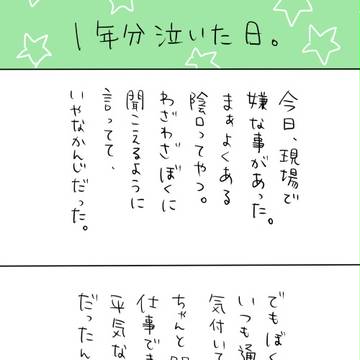 1年分泣いた日。
今日、現場で
嫌な事があった。
まぁよくある
陰口ってやつ。
わざわざぼくに
聞こえるように
言ってて、
いやなかんじだった。
でもぼく
いつも通
気付いて
ちゃんと
仕事でき
平気な
だったん